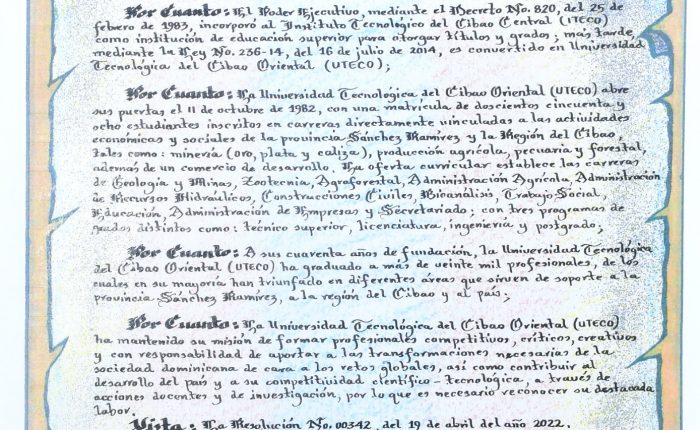 Por Cuanto: El Poder Ejecutivo, mediante el Decreto No. 820, del 25 de
febrero de 1983, incorporó al Instituto Tecnológico del Cibao Central (ITECO)
como institución de educación superior para otorgar títulos y grados; más tarde,
mediante la Ley No. 236-14, del 16 de julio de 2014, es convertido en Universidad
Tecnológica del Cibao Oriental (UTECO);
Por Cuanto: La Universidad Tecnológica del Cibao Oriental (UTECO) abre
sus puertas el 11 de octubre de 1982, con una matrícula de doscientos cincuenta y
ocho estudiantes inscritos en carreras directamente vinculadas a las actividades
económicas y sociales de la provincia Sánchez Ramírez y la Región del Cibao,
tales como: minería (oro, plata y caliza), producción agrícola, pecuaria y forestal,
además de un comercio de desarrollo. Su oferta curricular establece las carreras
de Geología y Minas, Zootecnia, Agroforestal, Administración Agrícola, Administración
de Recursos Hidraúlicos, Construcciones Civiles, Bioanálisis, Trabajo Social,
Educación, Administración de Empresas y Secretariado; con tres programas de
grados distintos como: técnico superior, licenciatura, ingeniería y postgrado;
Por Cuanto: A sus cuarenta años de fundación, la Universidad Tecnológica
del Cibao Oriental (UTECO) ha graduado a más de veinte mil profesionales, de los
cuales en su mayoría han triunfado en diferentes áreas que sirven de soporte a la
provincia Sánchez Ramírez, a la región del Cibao y al país;
Por Cuanto: La Universidad Tecnológica del Cibao Oriental (UTECO)
ha mantenido su misión de formar profesionales competitivos, críticos, creativos
y con responsabilidad de aportar a las transformaciones necesarias de la
sociedad dominicana de cara a los retos globales, así como contribuir al
desarrollo del país y a su competitividad científico-tecnológica, a través de
acciones docentes y de investigación, por lo que es necesario reconocer su destacada
labor.
Vista: La Resolución No. 00342, del 19 de abril del año 2022.